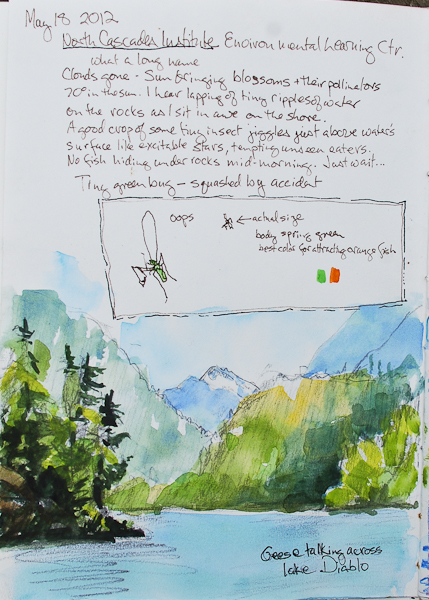 May 18 2012
North Cascades Institute Environmental Learning Ctr.
what a long name
Clouds gone - Sun bringing blossoms + their pollinators
70° in the sun. I hear lapping of tiny ripples of water
on the rocks as I sit in awe on the shore.
A good crop of some tiny insect jiggles just above water's
surface like excitable stars, tempting unseen eaters.
No fish hiding under rocks mid-morning. Just wait...
Tiny green bug - squashed by accident
oops
← actual size
body spring green
best color for attracting orange fish
Geese talking across
Lake Diablo